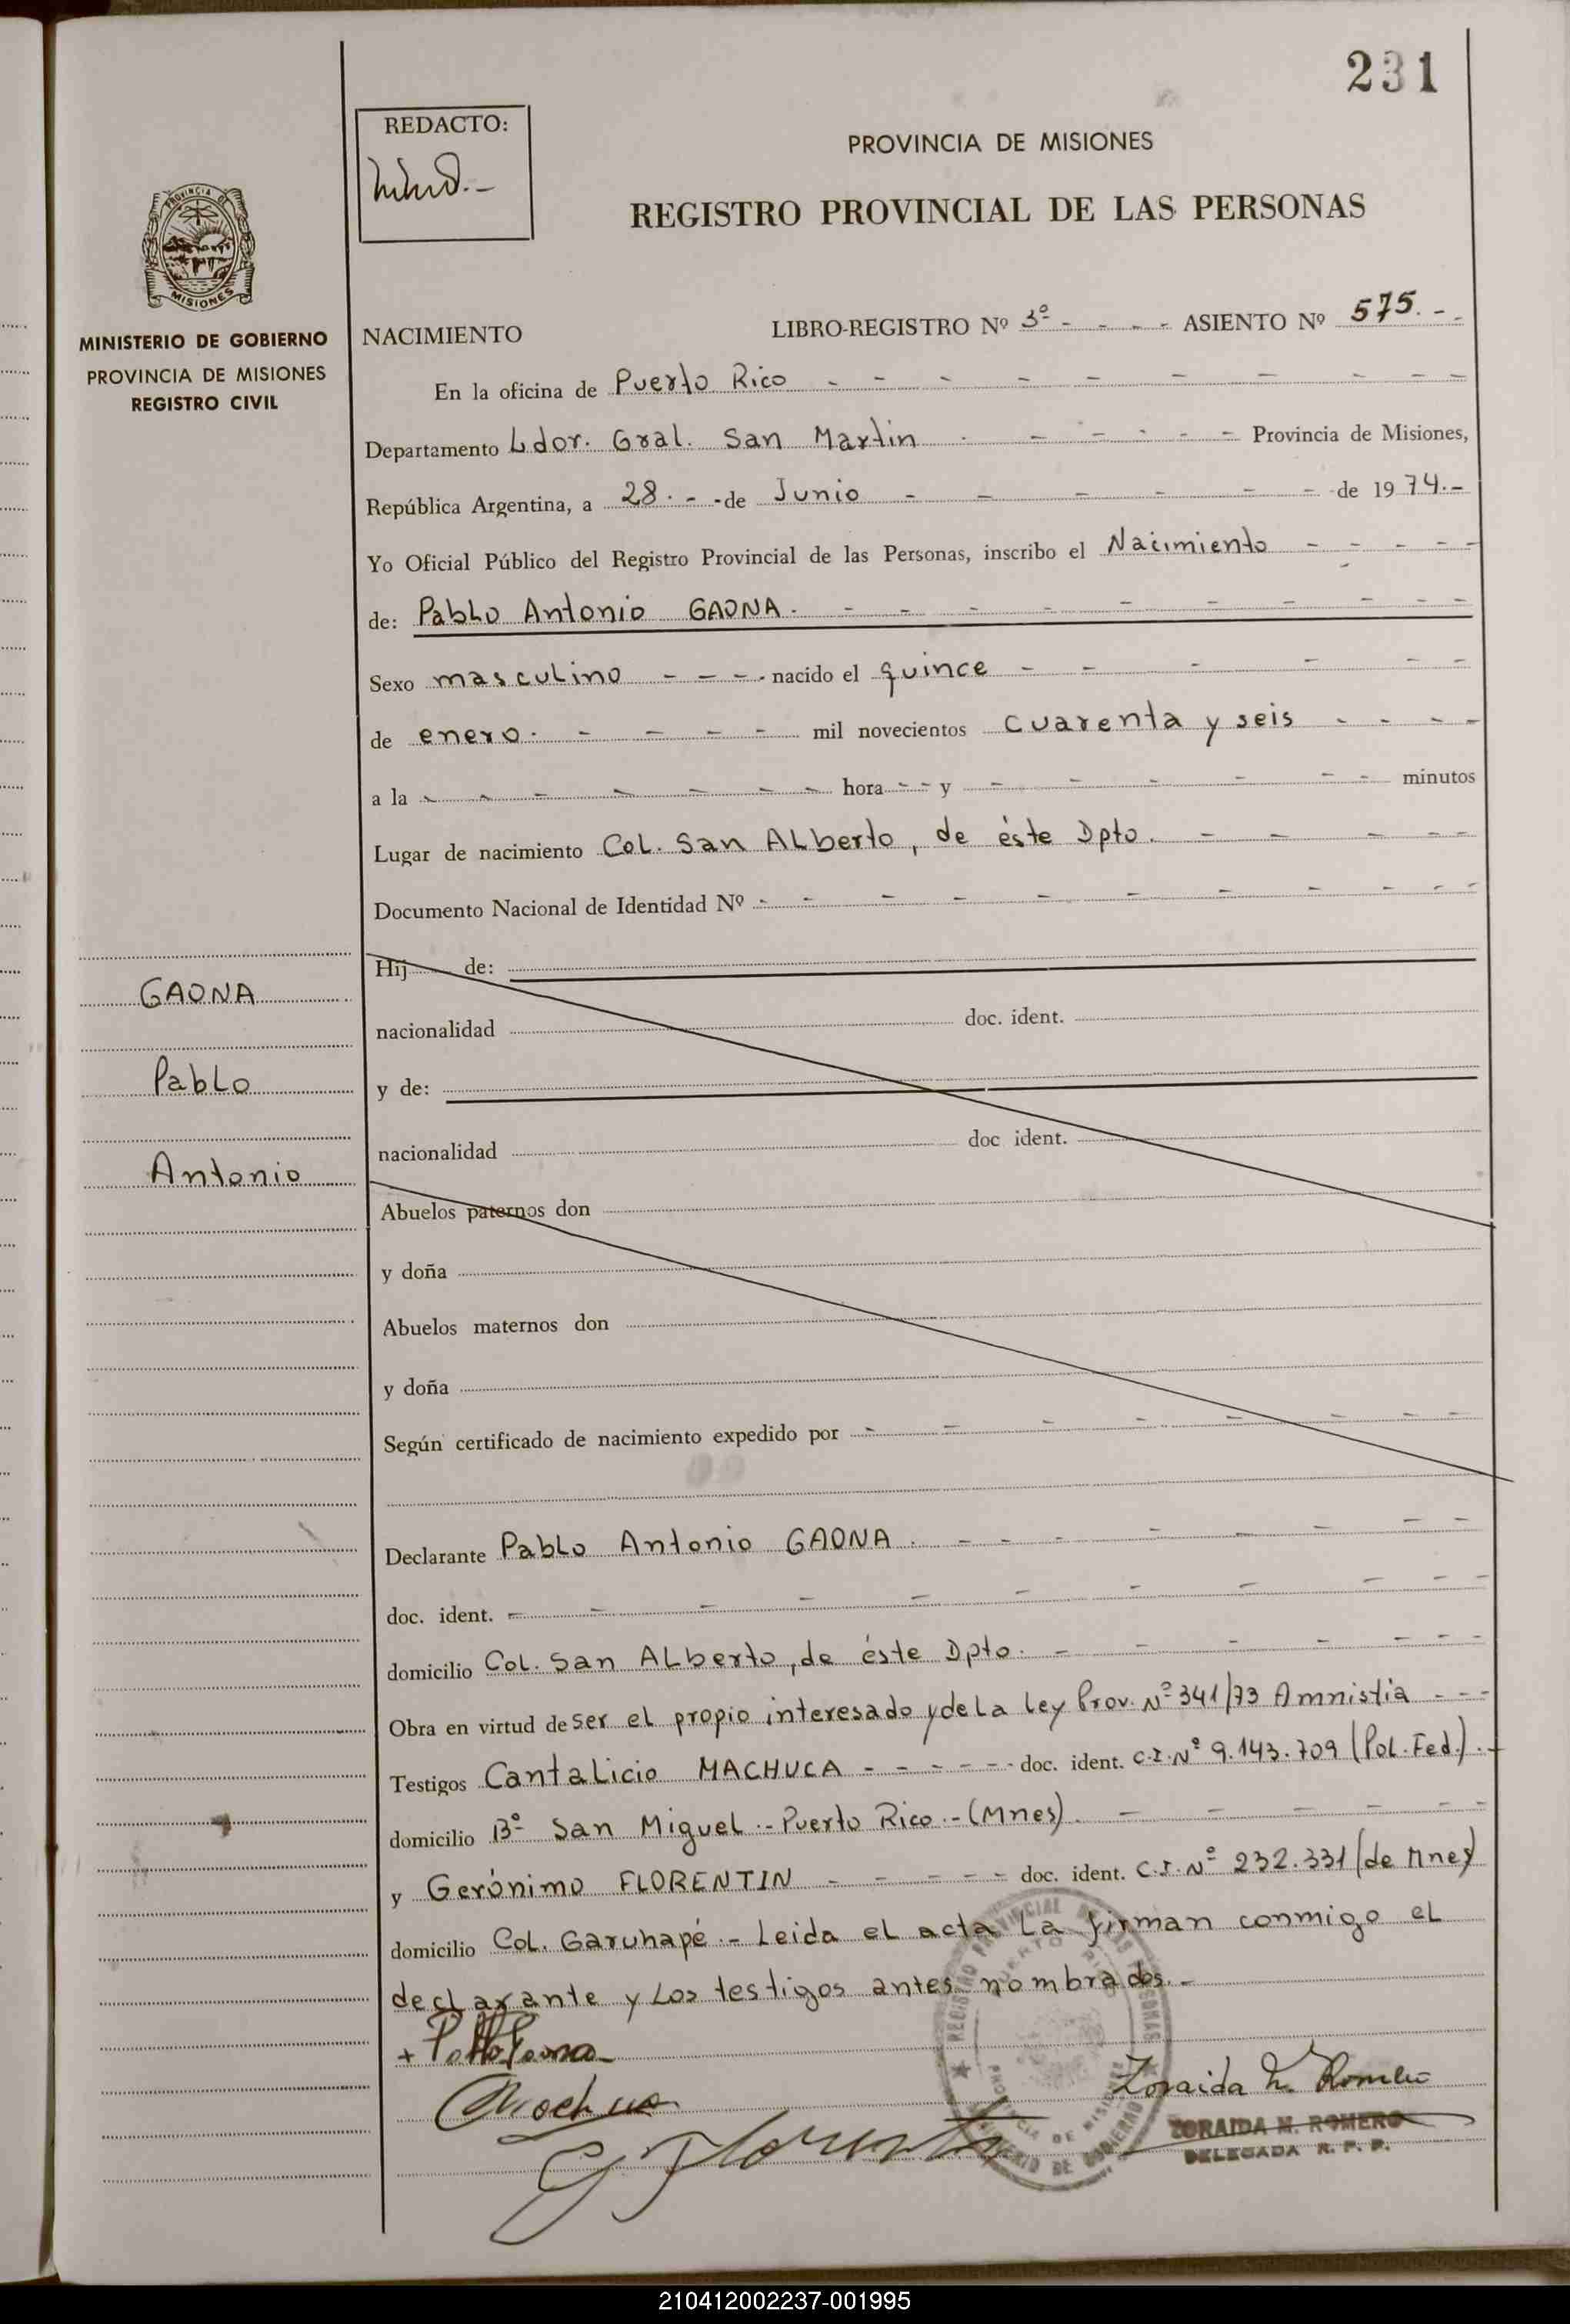 231
REDACTO:
PROVINCIA DE MISIONES
REGISTRO PROVINCIAL DE LAS PERSONAS
PROVINCIA DE
MISIONES
MINISTERIO DE GOBIERNO
PROVINCIA DE MISIONES
REGISTRO CIVIL
NACIMIENTO LIBRO-REGISTRO Nº 3º - - - - ASIENTO Nº 575. - -
En la oficina de Puerto Rico
Departamento Ldor. Gral. San Martin Provincia de Misiones,
República Argentina, a 28. - - de Junio - de 1974.-
Yo Oficial Público del Registro Provincial de las Personas, inscribo el Nacimiento
de: Pablo Antonio GAONA.
Sexo masculino - - - nacido el quince
de enero. mil novecientos cuarenta y seis
a la hora y minutos
Lugar de nacimiento Col. San Alberto, de éste Dpto.
Documento Nacional de Identidad Nº
Hij de:
GAONA
nacionalidad doc. ident.
Pablo
y de:
nacionalidad doc ident.
Antonio
Abuelos paternos don
y doña
Abuelos maternos don
y doña
Según certificado de nacimiento expedido por
Declarante Pablo Antonio GAONA.
doc. ident.
domicilio Col. San Alberto, de éste Dpto.
Obra en virtud de ser el propio interesado y de la Ley Prov. Nº 341/73 Amnistia - - -
Testigos Cantalicio MACHUCA - - - - - doc. ident. C.I. Nº 9.143.709 (Pol. Fed.).-
domicilio Bº San Miguel.- Puerto Rico.- (Mnes).
y Gerónimo FLORENTIN - - - - doc. ident. C.I. Nº 232.331 (de Mnes)
domicilio Col. Garuhapé.- Leida el acta la firman conmigo el
declarante y los testigos antes nombrados.-
Zoraida N. Romero
ZORAIDA N. ROMERO
DELEGADA R. P. P.
210412002237-001995